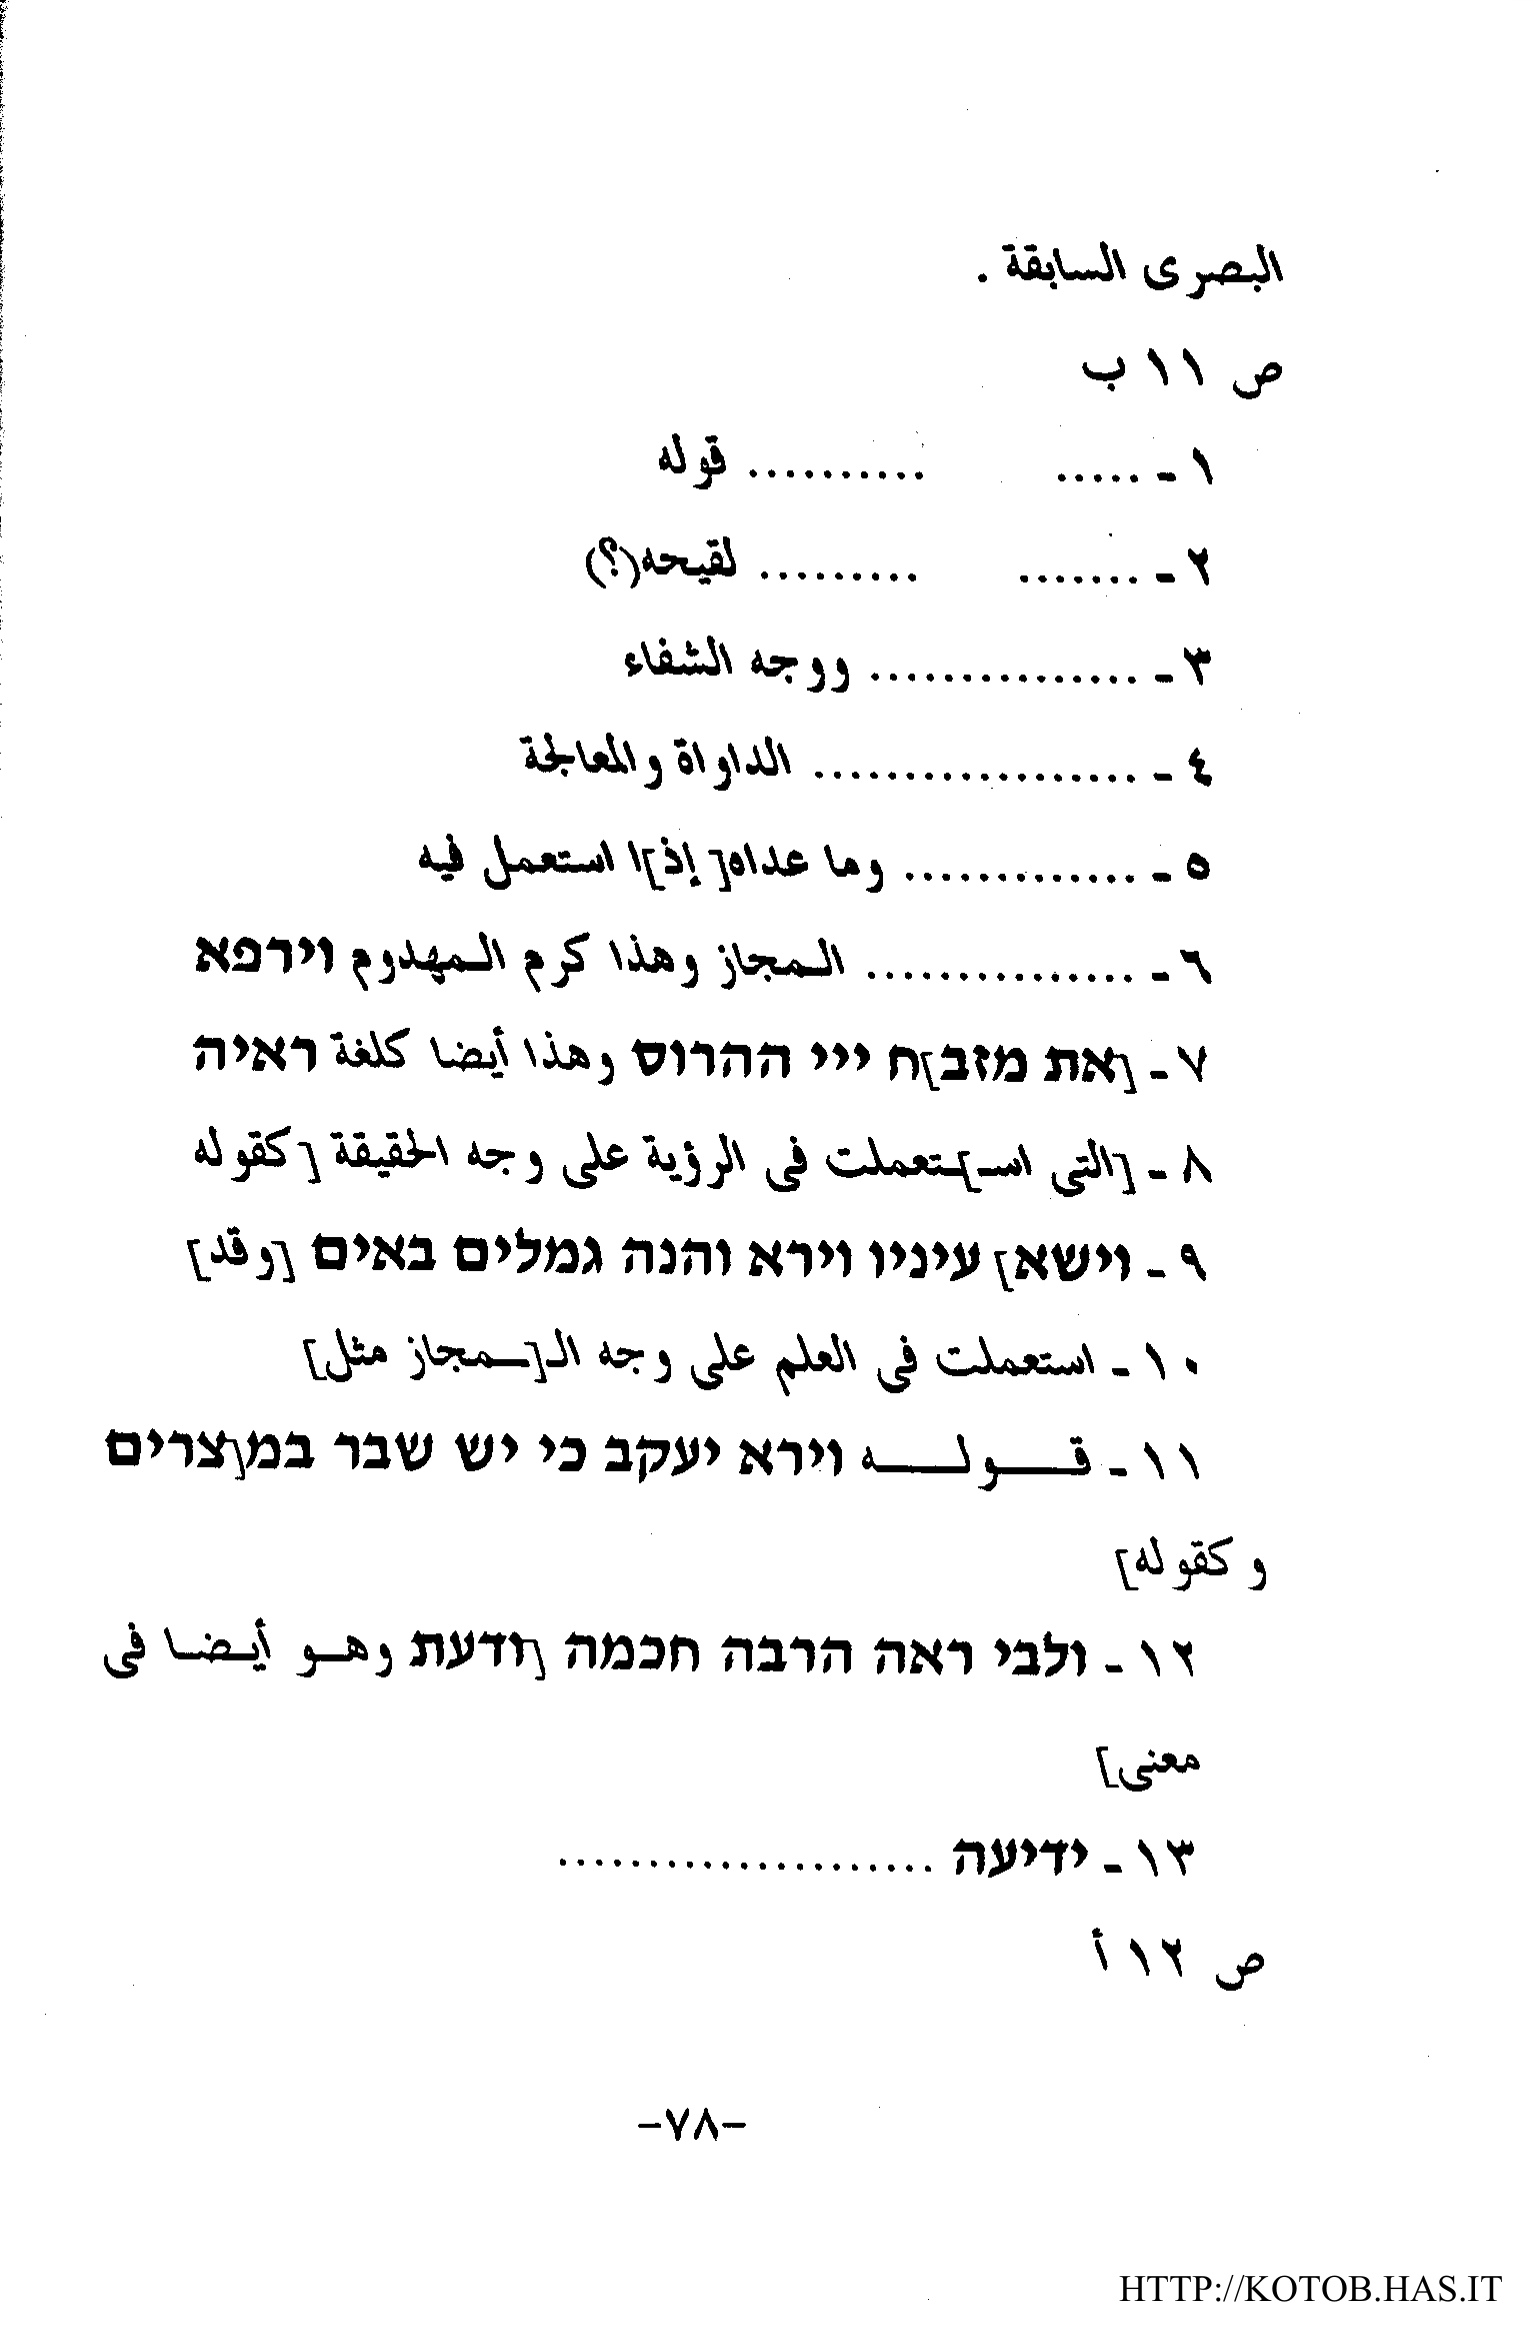 البصرى السابقة .
ص ١١ ب
١ - ..... .......... قوله
٢ - ....... ......... لقيحه(؟)
٣ - ............... ووجه الشفاء
٤ - .................. الداواة والمعالجة
٥ - ............. وما عداه[ إذ]ا استعمل فيه
٦ - ............... المجاز وهذا كرم المهدوم וירפא
٧ - [את מזב]ח ייי ההרוס وهذا أيضا كلغة ראיה
٨ - [التى اسـ]ـتعملت فى الرؤية على وجه الحقيقة [كقوله
٩ - וישא] עיניו וירא והנה גמלים באים [وقد]
١٠ - استعملت فى العلم على وجه الـ[ـمجاز مثل]
١١ - قـــولـــه וירא יעקב כי יש שבר במ[צרים
وكقوله]
١٢ - ולבי ראה הרבה חכמה [ודעת وهـو أيـضـا فى
معنى]
١٣ - ידיעה .....................
ص ١٢ أ
-٧٨-
HTTP://KOTOB.HAS.IT